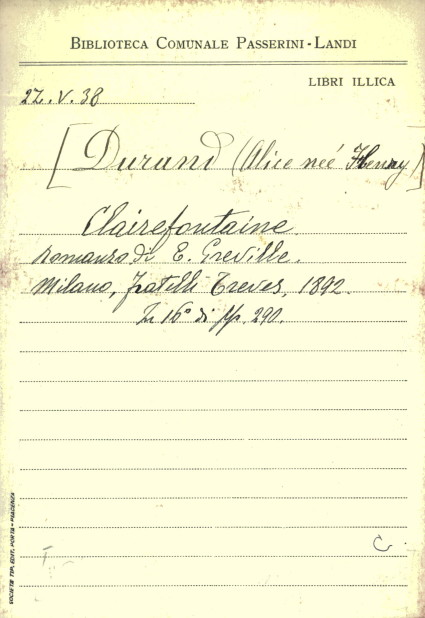 BIBLIOTECA COMUNALE PASSERINI-LANDI
LIBRI ILLICA
2Z.V.38
[Durand (Alice neé Henry)]
Clairefontaine.
Romanzo di E. Greville.
Milano, fratelli Treves, 1892.
In 16° di pp. 290.
C.
SOCIETÀ TIP. EDIT. PORTA - PIACENZA